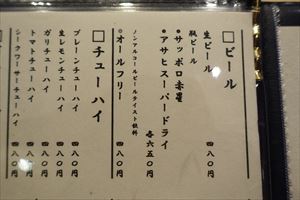 □ビール
生ビール 四八〇円
瓶ビール
・サッポロ赤星
・アサヒスーパードライ
各六五〇円
ノンアルコールビールテイスト飲料
・オールフリー 四八〇円
□チューハイ
プレーンチューハイ 四八〇円
生レモンチューハイ 四八〇円
ガリチューハイ 四八〇円
トマトチューハイ 四八〇円
シークワーサーチューハイ 四八〇円